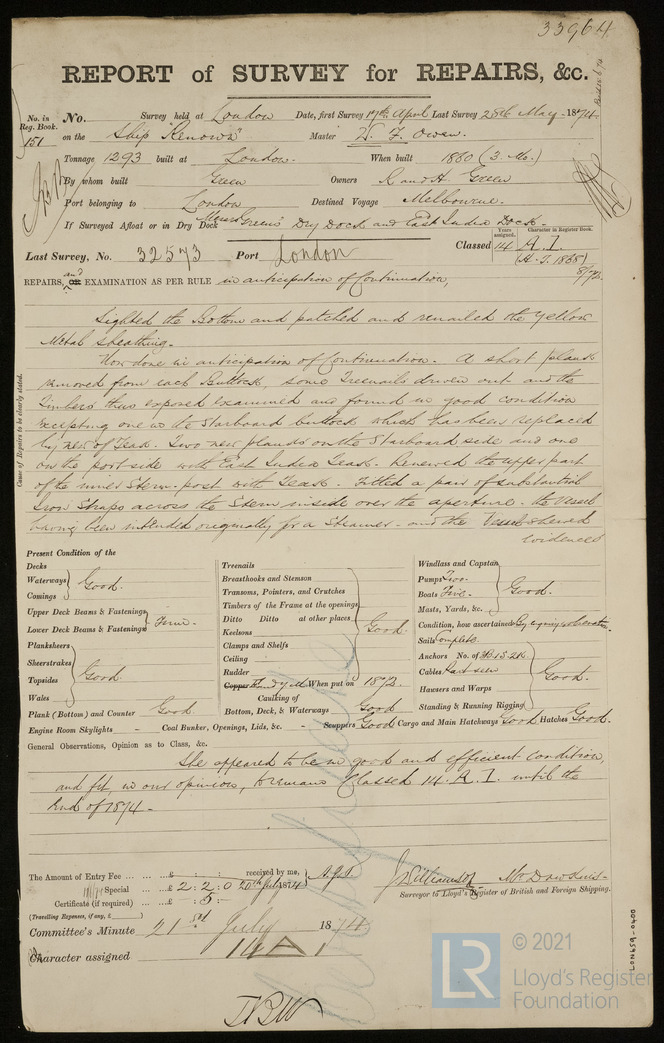 33964
REPORT of SURVEY for REPAIRS, &c.
No. in Reg. Book. 151
No. Survey held at London Date, first Survey 17th April Last Survey 28th May 1874
on the Ship "Renown" Master W. F. Owen.
Tonnage 1293 built at London. When built 1860 (3. Mo.)
By whom built Green Owners R and H Green
Port belonging to London Destined Voyage Melbourne.
If Surveyed Afloat or in Dry Dock Messrs Green's Dry Dock and East India Dock.
Last Survey, No. 32573 Port London
Classed Years assigned. 14 Character in Register Book. A. 1.
8/72
REPAIRS, and EXAMINATION AS PER RULE in anticipation of Continuation,
Cause of Repairs to be clearly stated.
Sighted the Bottom and patched and renailed the Yellow
Metal Sheathing.
Now done in anticipation of Continuation. A short plank
removed from each Buttock, some Treenails driven out and the
Timbers thus exposed examined and found in good condition
excepting one in the Starboard buttock which has been replaced
by new of Teak. Two new planks on the Starboard side and one
on the port side with East India Teak. Renewed the upper part
of the inner Stern-post with Teak. Fitted a pair of substantial
Iron Straps across the Stern inside over the aperture. the Vessel
having been intended originally for a Steamer - and the Vessel shewed
evidences
Present Condition of the
Decks
Waterways Good.
Comings
Upper Deck Beams & Fastenings
Lower Deck Beams & Fastenings Firm.
Planksheers
Sheerstrakes
Topsides Good
Wales
Plank (Bottom) and Counter Good
Engine Room Skylights - Coal Bunker, Openings, Lids, &c. - Scuppers Good Cargo and Main Hatchways Good Hatches Good.
Treenails
Breasthooks and Stemson
Transoms, Pointers, and Crutches
Timbers of the Frame at the openings
Ditto Ditto at other places Good.
Keelsons
Clamps and Shelfs
Ceiling
Rudder
Copper When put on 1872.
Caulking of
Bottom, Deck, & Waterways Good
Windlass and Capstan
Pumps Two.
Boats Five. Good.
Masts, Yards, &c.
Condition, how ascertained
Sails Complete.
Anchors No. of
Cables Part seen Good.
Hawsers and Warps
Standing & Running Rigging
General Observations, Opinion as to Class, &c.
She appeared to be in good and efficient condition,
and fit, in our opinion, to remain Classed 14. A. 1. until the
End of 1874 -
The Amount of Entry Fee ... £ : : received by me,
Special ... £ 2 : 2 : 0 20th July 1874
Certificate (if required) ... £ : 5 :
(Travelling Expenses, if any, £ )
J Williamson
Surveyor to Lloyd's Register of British and Foreign Shipping.
Committee's Minute 21st July 1874
Character assigned 14 A 1
LON659-0400
LR
© 2021
Lloyd's Register
Foundation